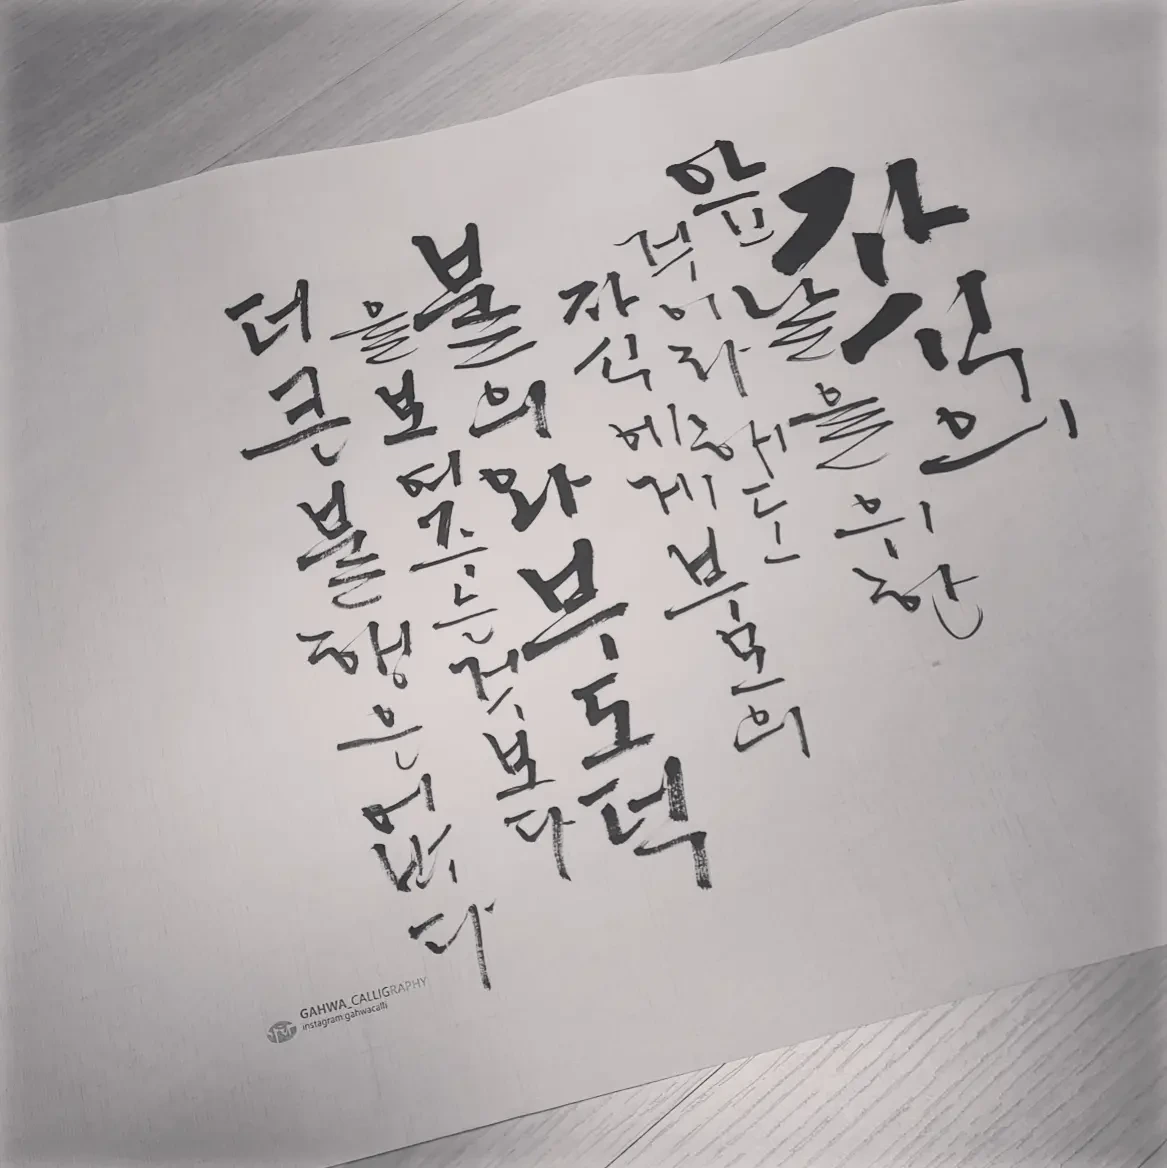 자식의
앞날을 위한
것이라 해도
자신에게 부모의
불의와 부도덕
을 보여주는 것보다
더 큰 불행은 없다
GAHWA_CALLIGRAPHY
instagram:gahwacalli